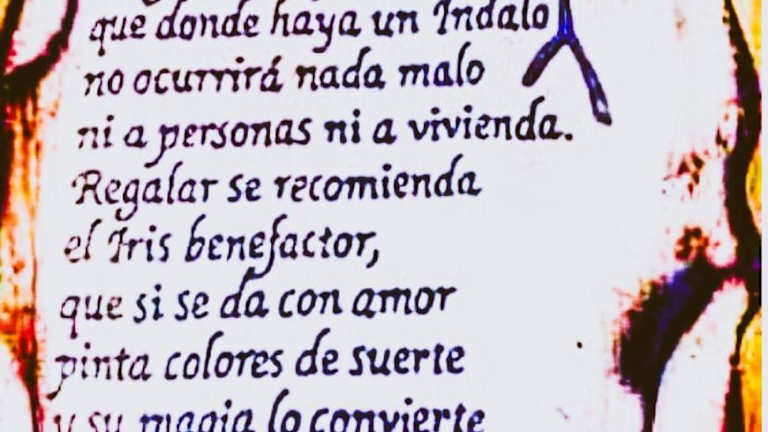 que donde haya un Indalo
no ocurrirá nada malo
ni a personas ni a vivienda.
Regalar se recomienda
el Iris benefactor,
que si se da con amor
pinta colores de suerte
y su magia lo convierte